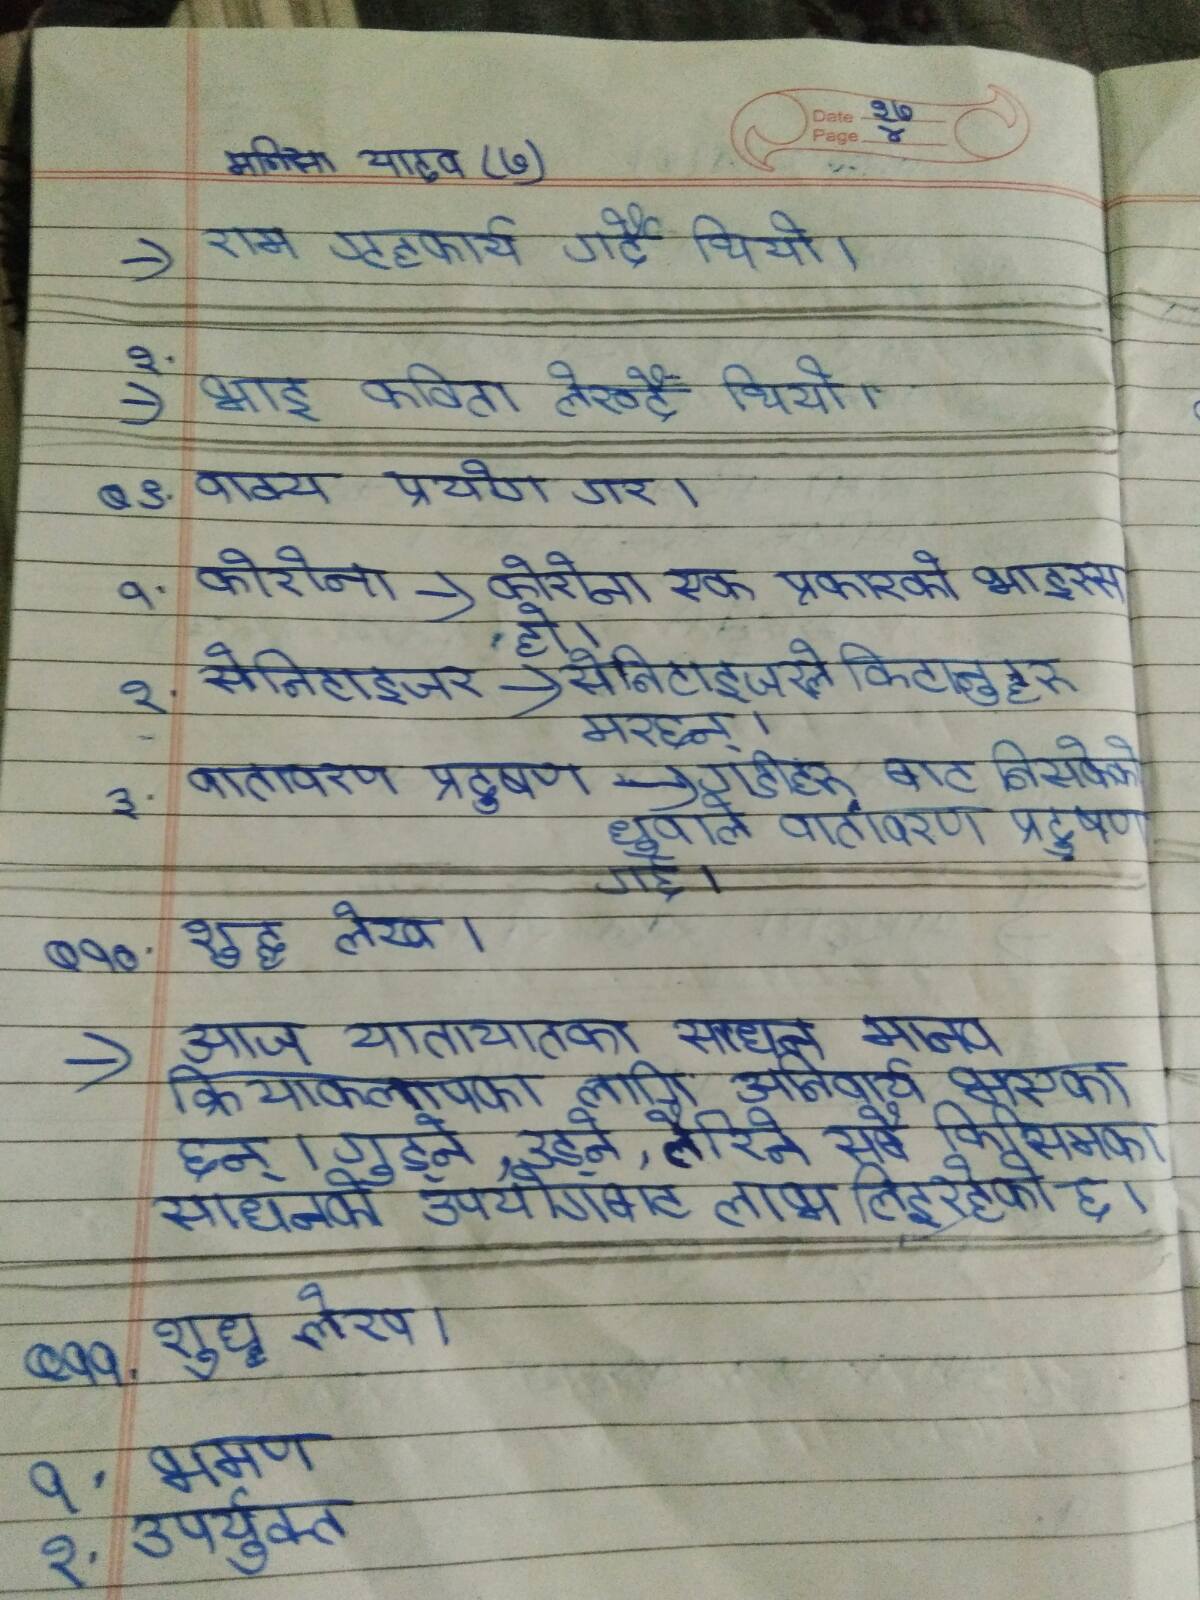 Date २७
Page ४
मनिसा यादव (७)
→ राम गृहकार्य गर्दै थियो।
२.
→ भाइ कविता लेख्दै थियो।
Q९. वाक्य प्रयोग गर।
१. कोरोना → कोरोना एक प्रकारको भाइरस
हो।
२. सेनिटाइजर → सेनिटाइजरले किटानुहरू
मरछन्।
३. वातावरण प्रदुषण → गाडीहरू बाट निस्केको
धुवाले वातावरण प्रदुषण
गर्छ।
Q१०. शुद्ध लेख।
→ आज यातायातका साधन मानव
क्रियाकलापका लागि अनिवार्य भएका
छन्। गुड्ने, उड्ने, तैरिने सबै किसिमका
साधनको उपयोगबाट लाभ लिइरहेको छ।
Q११. शुध्द लेख।
१. भ्रमण
२. उपर्युक्त